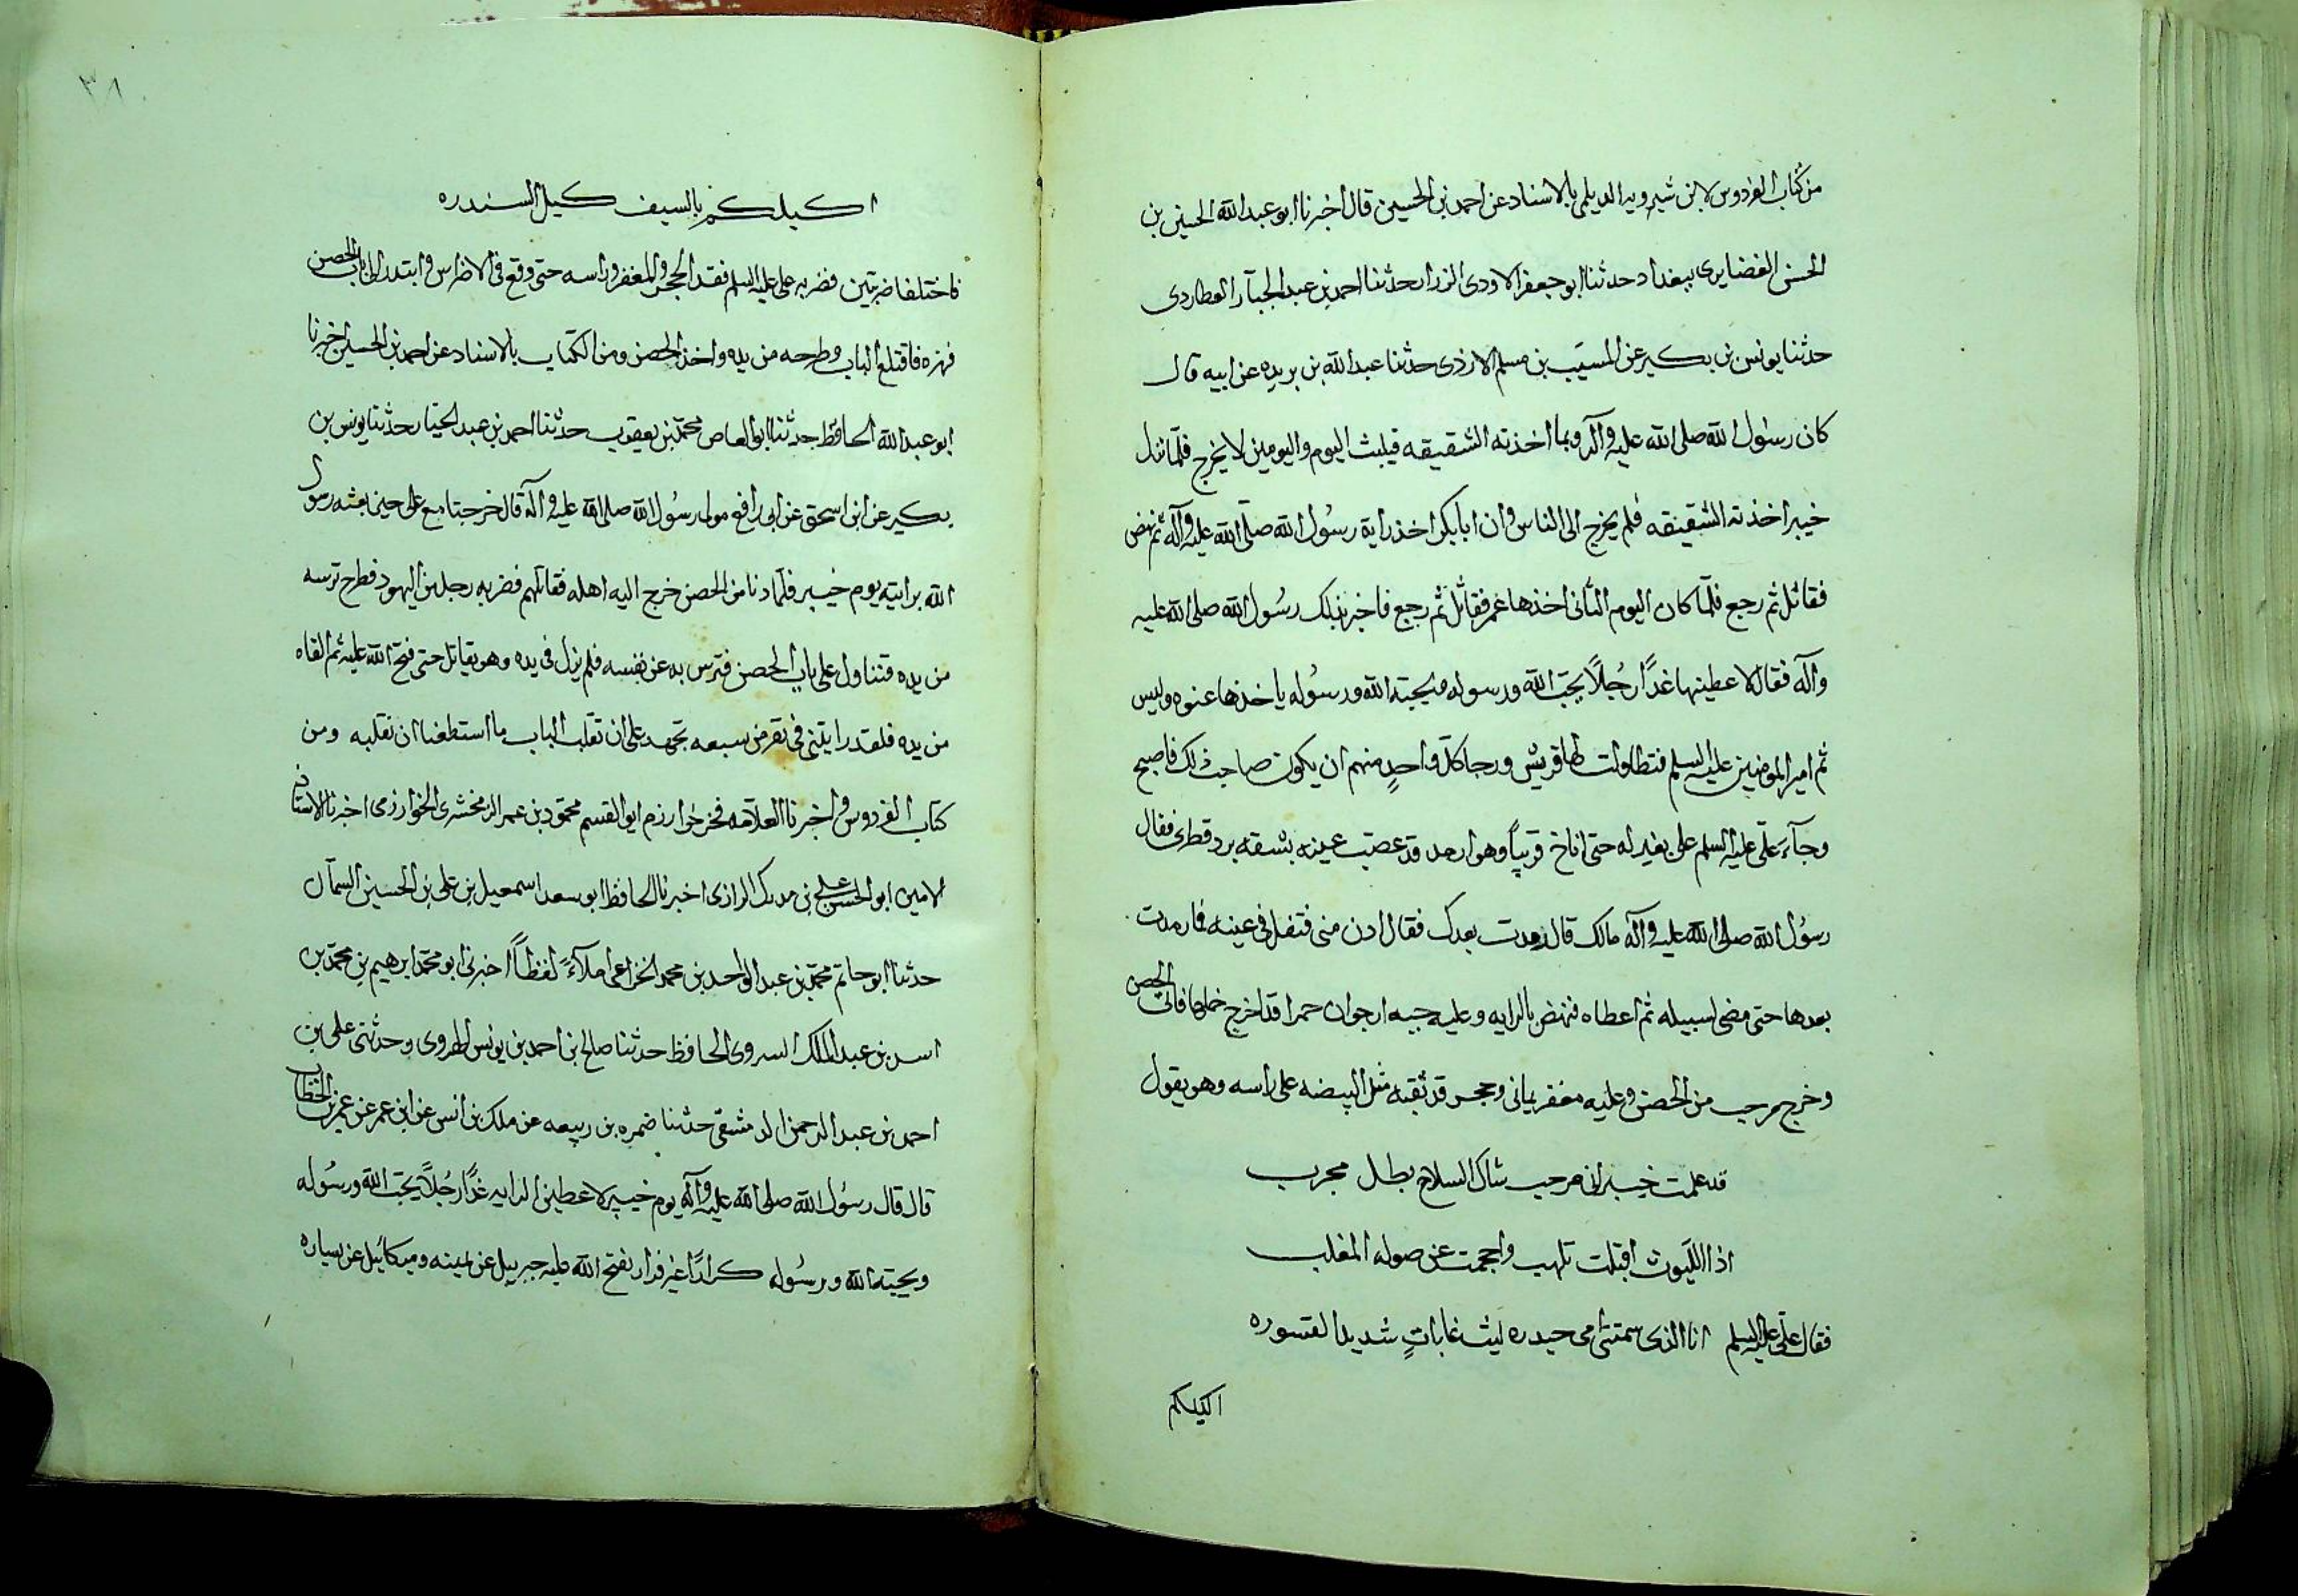 من كتاب الفردوس لابن شيرويه الديلمي بالاسناد عن احمد بن الحسين قال اخبرنا ابو عبدالله الحسين بن
الحسن الغضايري ببغداد حدثنا ابو جعفر الاودي الزرار حدثنا احمد بن عبد الجبار العطاردي
حدثنا يونس بن بكير عن المسيب بن مسلم الازدي حدثنا عبد الله بن بريده عن ابيه قال
كان رسول الله صلى الله عليه وآله وبما اخذته الشقيقه فيلبث اليوم واليومين لا يخرج فلما نزل
خيبر اخذته الشقيقه فلم يخرج الى الناس وان ابا بكر اخذ راية رسول الله صلى الله عليه وآله ثم نهض
فقاتل ثم رجع فلما كان اليوم الثاني اخذها عمر فقاتل ثم رجع فاخبر بذلك رسول الله صلى الله عليه
وآله فقال لاعطينها غداً رجلاً يحب الله ورسوله ويحبه الله ورسوله ياخذها عنوه وليس
ثم امير المومنين عليه السلم فتطاولت لها قريش ورجا كل واحدٍ منهم ان يكون صاحب ذلك فاصبح
وجآء علي عليه السلم على بعير له حتى اناخ قريباً وهو ارمد قد عصب عينه بشقه برد قطري فقال
رسول الله صلى الله عليه وآله مالك قال رمدت بعدك فقال ادن مني فتفل في عينه فما رمدت
بعدها حتى مضى لسبيله ثم اعطاه فنهض بالرايه وعليه جبه ارجوان حمرا قد اخرج خملها فاتى الحصن
وخرج مرحب من الحصن وعليه مغفر يماني وحجر قد ثقبه مثل البيضه على راسه وهو يقول
قد علمت خيبر اني مرحب شاك السلاح بطل مجرب
اذا الليوث اقبلت تلهب واحجمت عن صوله المغلب
فقال علي عليه السلم انا الذي سمتني امي حيدره ليث غاباتٍ شديد القسوره
اكيلكم
٣٨
اكيلكم بالسيف كيل السندره
فاختلفا ضربتين فضربه علي عليه السلم فقد الحجر والمغفر وراسه حتى وقع في الاضراس وابتدر الى باب الحصن
فهزه فاقتلع الباب وطرحه من يده واخذ الحصن ومن الكتاب بالاسناد عن احمد بن الحسين اخبرنا
ابو عبد الله الحافظ حدثنا ابو العاص محمد بن يعقوب حدثنا احمد بن عبد الجبار حدثنا يونس بن
بكير عن ابن اسحق عن ابي رافع مولى رسول الله صلى الله عليه وآله قال خرجنا مع علي حين بعثه رسول
الله برايته يوم خيبر فلما دنا من الحصن خرج اليه اهله فقاتلهم فضربه رجل من اليهود فطرح ترسه
من يده فتناول علي باب الحصن فترس به عن نفسه فلم يزل في يده وهو يقاتل حتى فتح الله عليه ثم القاه
من يده فلقد رايتني في نفر من سبعه نجهد على ان نقلب الباب ما استطعنا ان نقلبه ومن
كتاب الفردوس واخبرنا العلامه فخر خوارزم ابو القسم محمود بن عمر الزمخشري الخوارزمي اخبرنا الاستاذ
الامين ابو الحسن علي بن مردك الرازي اخبرنا الحافظ ابو سعد اسمعيل بن علي بن الحسين السمآن
حدثنا ابو حاتم محمد بن عبد الواحد بن محمد الخزاعي املآءً لفظاً اخبرني ابو محمد ابرهيم بن محمد بن
اسد بن عبد الملك السروي الحافظ حدثنا صالح بن احمد بن يونس الهروي وحدثني علي بن
احمد بن عبد الرحمن الدمشقي حدثنا ضمره بن ربيعه عن ملك بن انس عن ابن عمر عن عمر بن الخطاب
قال قال رسول الله صلى الله عليه وآله يوم خيبر لاعطين الرايه غداً رجلاً يحب الله ورسوله
ويحبه الله ورسوله كراراً غير فرار يفتح الله عليه جبرييل عن يمينه وميكائيل عن يساره